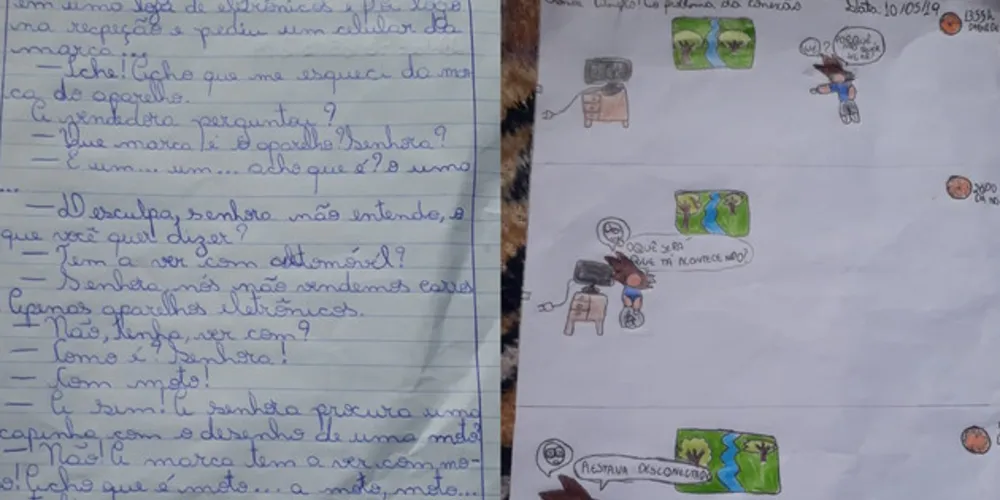 em uma loja de eletrônicos e foi logo
na recepção e pediu um celular da
marca...
— Iche! Acho que me esqueci da mar
ca do aparelho.
A vendedora perguntou?
— Que marca é o aparelho? Senhora?
— É um... um... acho que é? O uma
...
— Desculpa, senhora não entendo, o
que você quer dizer?
— Tem a ver com automóvel?
— Senhora, nós não vendemos carros
Apenas aparelhos eletrônicos.
— Não, tenha, ver com?
— Como é? Senhora!
— Com moto!
— A sim! A senhora procura uma
capinha com o desenho de uma moto?
—! Não! A marca tem a ver com mo-
o! Acho que é moto... a moto, moto...
O problema da conexão
Data: 10/05/19
1355h
OQUÊ SERÁ
QUE TÁ ACONTECENÃO?
2000
DA NO
AESTAVA DESCONECTADO